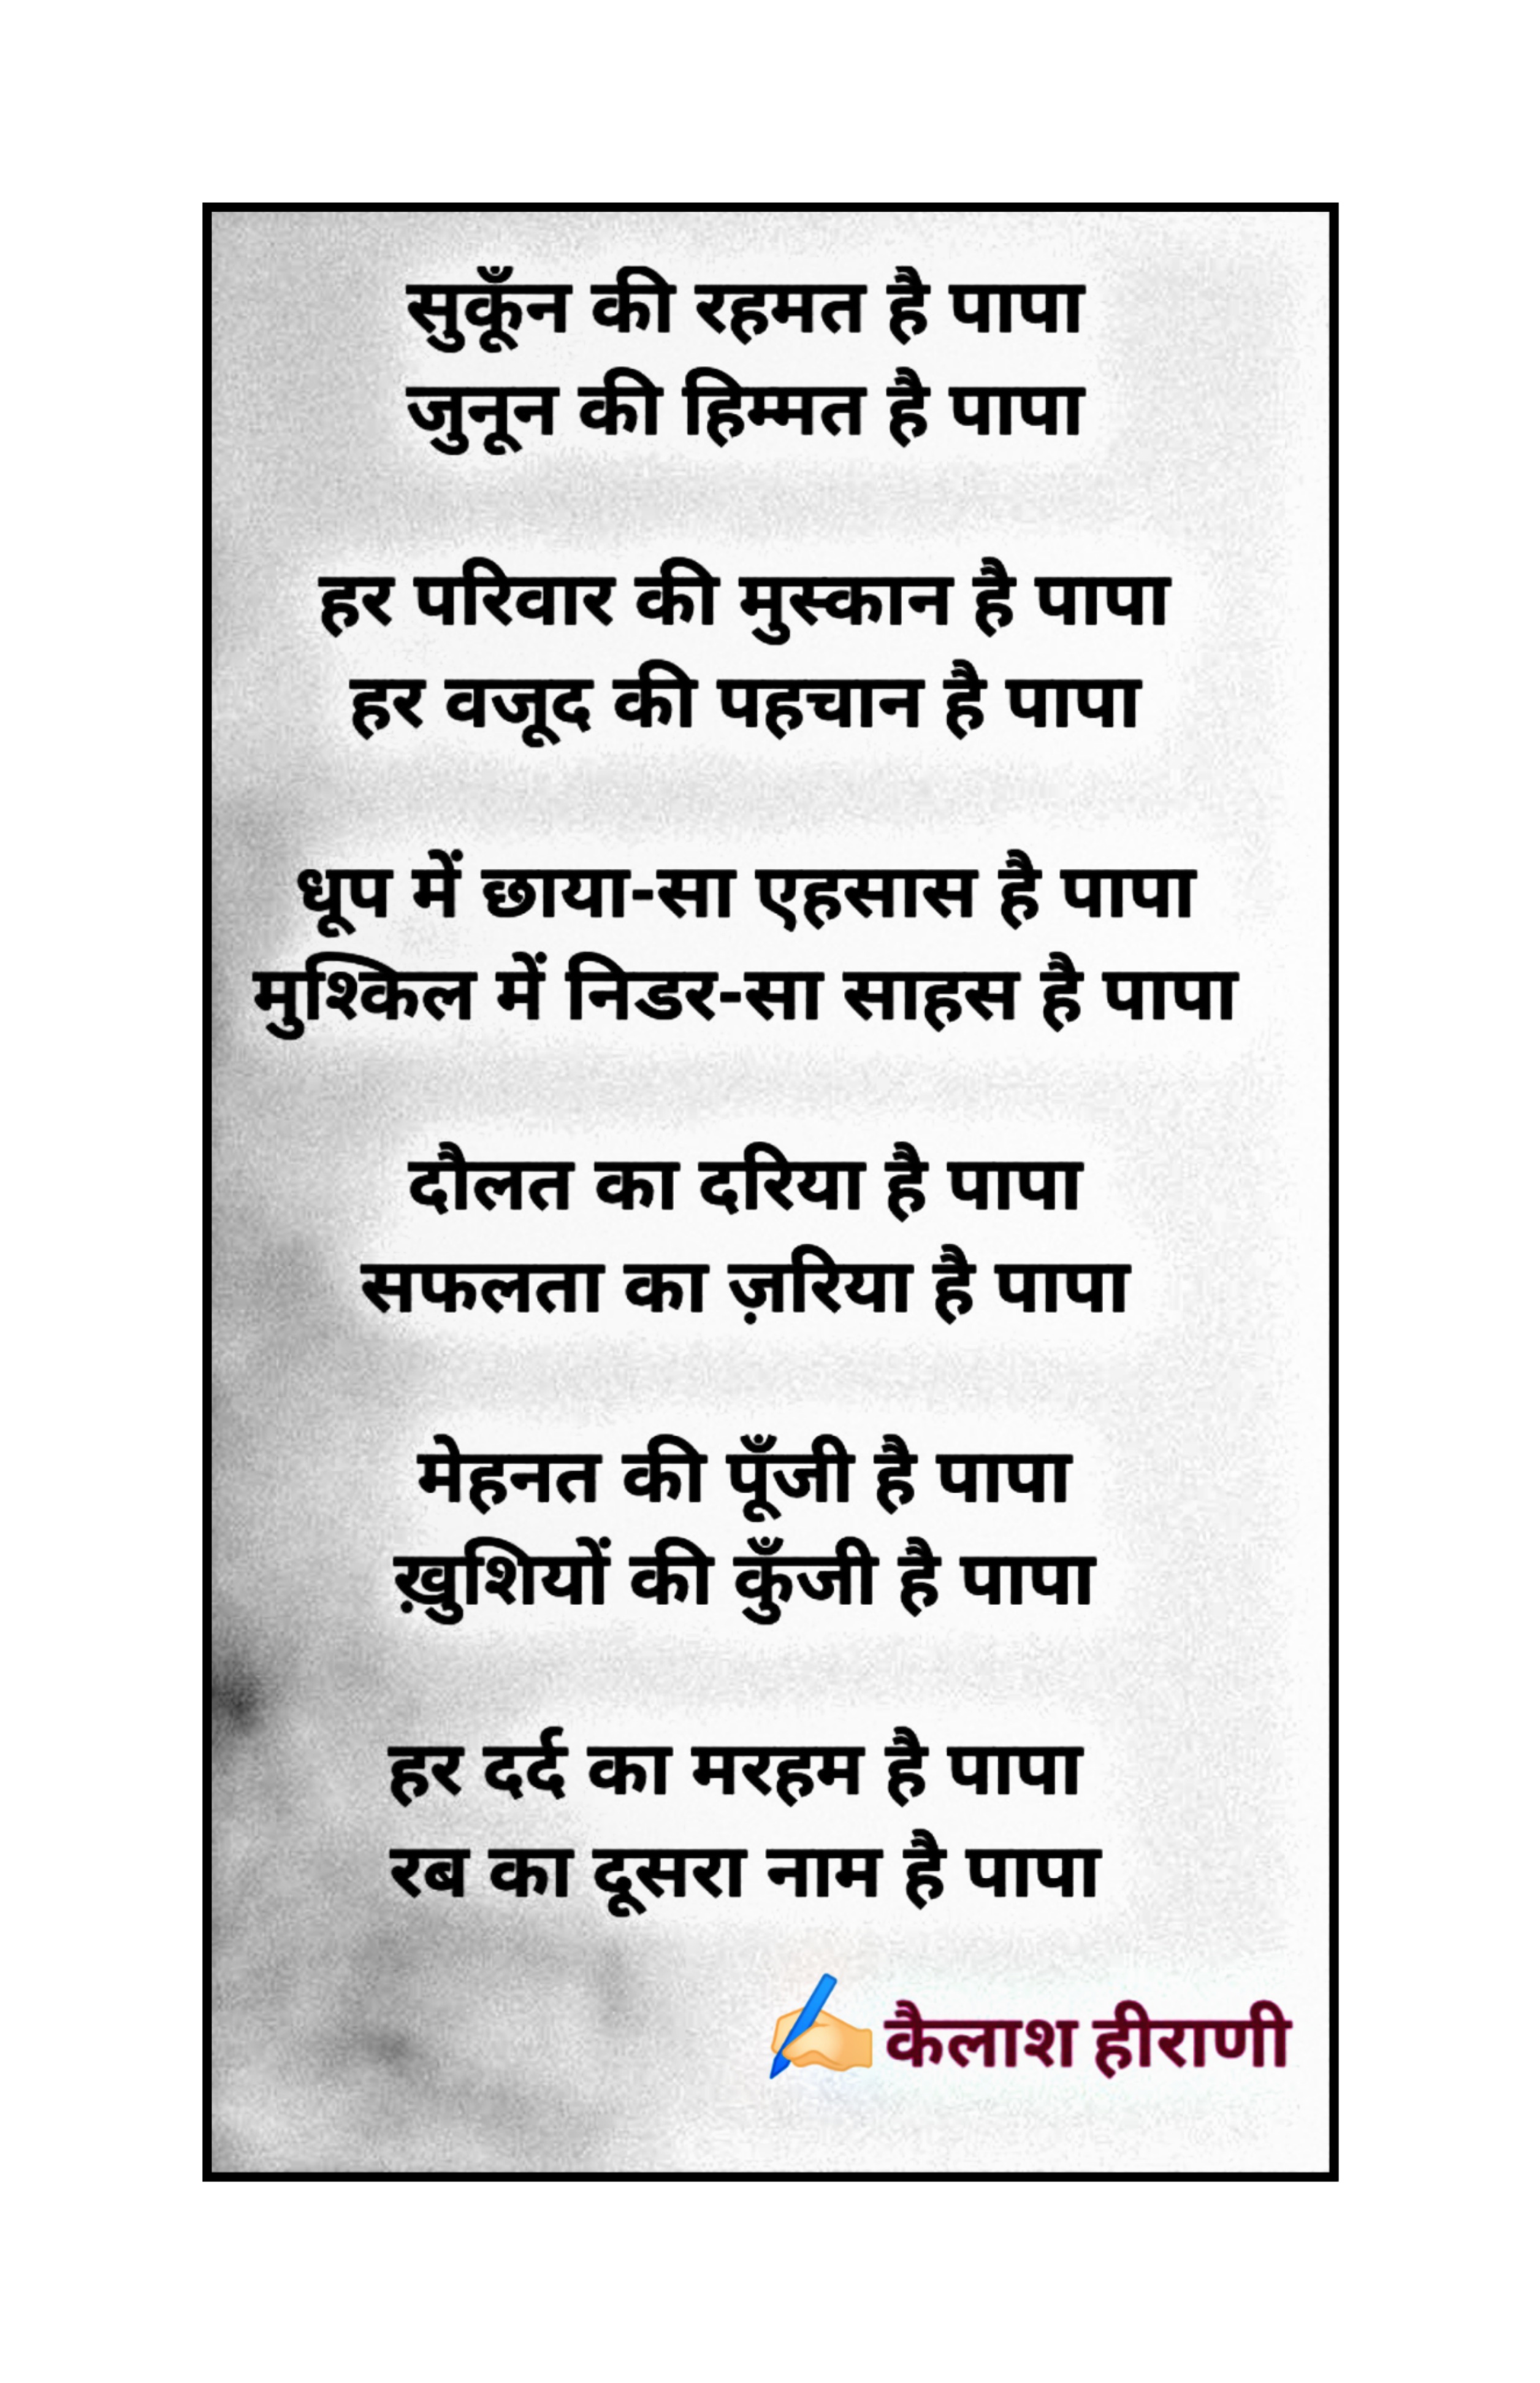 सुकूँन की रहमत है पापा
जुनून की हिम्मत है पापा
हर परिवार की मुस्कान है पापा
हर वजूद की पहचान है पापा
धूप में छाया-सा एहसास है पापा
मुश्किल में निडर-सा साहस है पापा
दौलत का दरिया है पापा
सफलता का ज़रिया है पापा
मेहनत की पूँजी है पापा
ख़ुशियों की कुँजी है पापा
हर दर्द का मरहम है पापा
रब का दूसरा नाम है पापा
✍🏻 कैलाश हीराणी